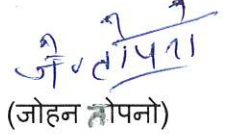 जे॰ तोपनो
(जोहन तोपनो)